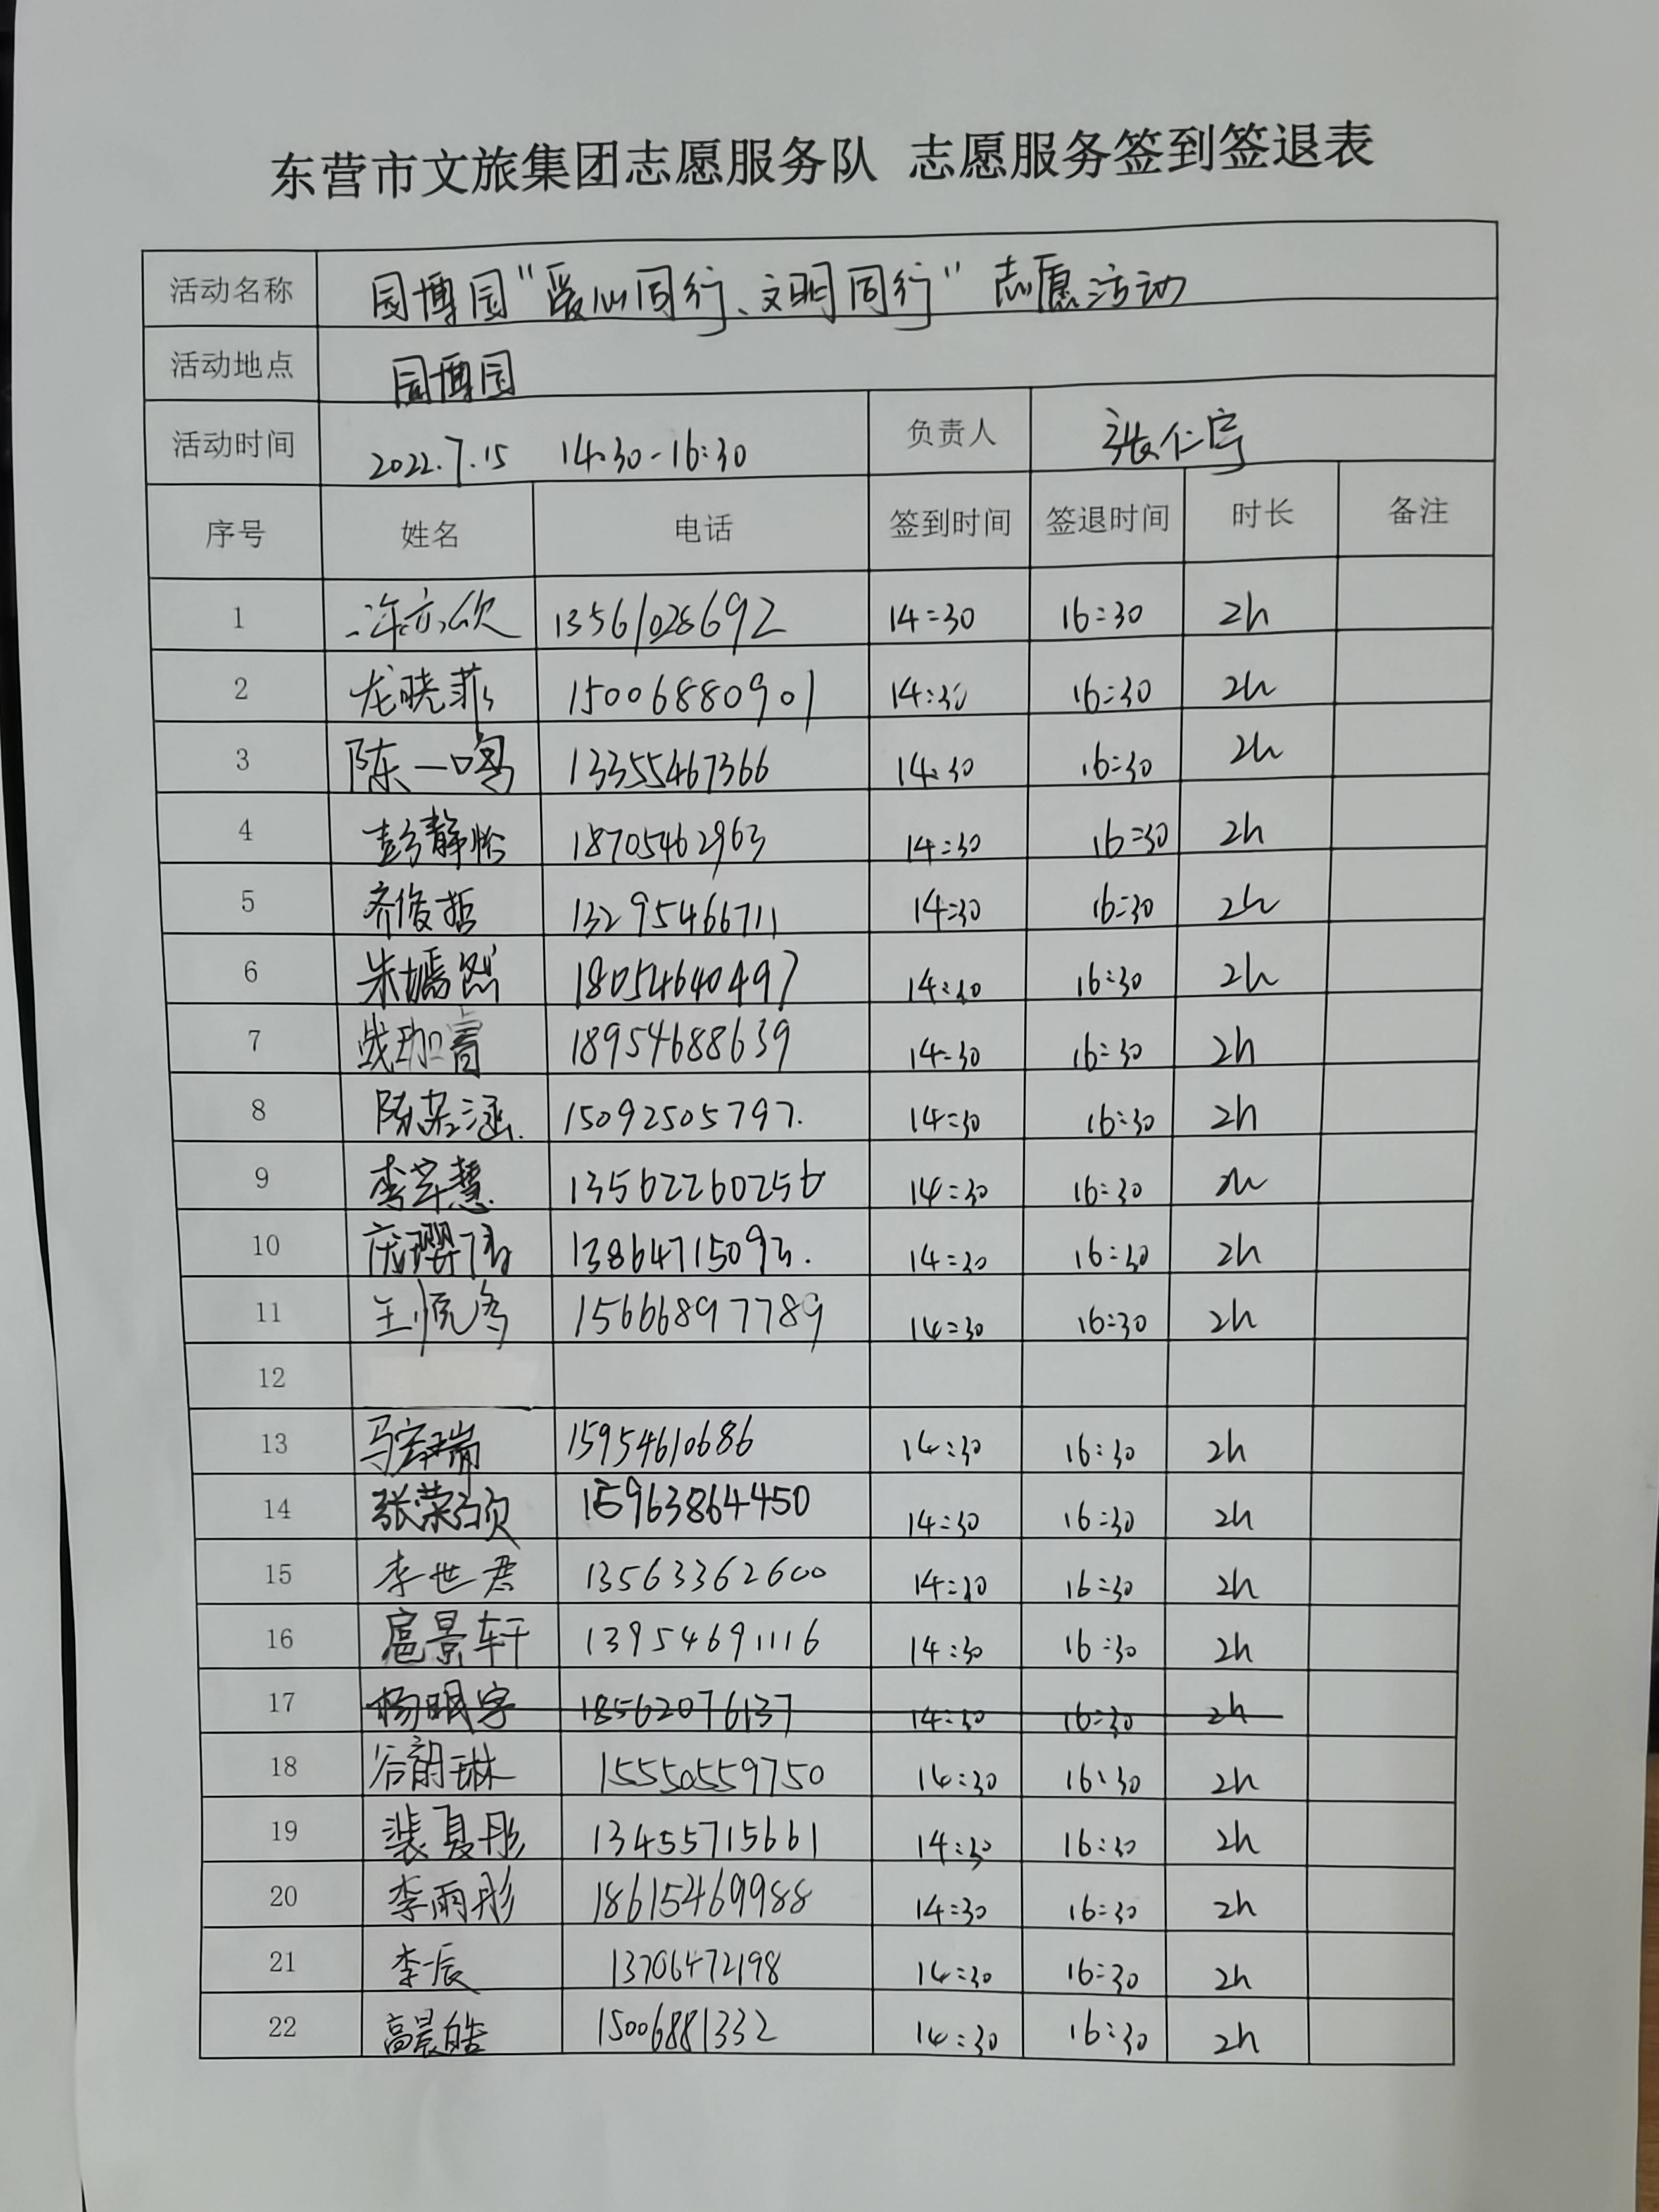 东营市文旅集团志愿服务队 志愿服务签到签退表
活动名称 园博园“爱心同行、文明同行”志愿活动
活动地点 园博园
活动时间 2022.7.15 14:30-16:30 负责人 张仁宇
序号 姓名 电话 签到时间 签退时间 时长 备注
1 许亦欣 13561028692 14:30 16:30 2h
2 龙晓菲 15006880901 14:30 16:30 2h
3 陈一鸣 13355467366 14:30 16:30 2h
4 彭静怡 18705462963 14:30 16:30 2h
5 齐俊哲 13295466711 14:30 16:30 2h
6 朱嫣然 18054640497 14:30 16:30 2h
7 战珈睿 18954688639 14:30 16:30 2h
8 陈若涵 15092505797. 14:30 16:30 2h
9 李芊慧 13562260256 14:30 16:30 2h
10 13864715093. 14:30 16:30 2h
11 15666897789 14:30 16:30 2h
12
13 15954610686 14:30 16:30 2h
14 张荣硕 15963864450 14:30 16:30 2h
15 李世君 13563362600 14:30 16:30 2h
16 扈景轩 13954691116 14:30 16:30 2h
17 杨明宇 18562076137 14:30 16:30 2h
18 谷韵琳 15550559750 14:30 16:30 2h
19 裴夏彤 13455715661 14:30 16:30 2h
20 李雨彤 18615469988 14:30 16:30 2h
21 李一辰 13706472198 14:30 16:30 2h
22 高晨皓 15006881332 14:30 16:30 2h